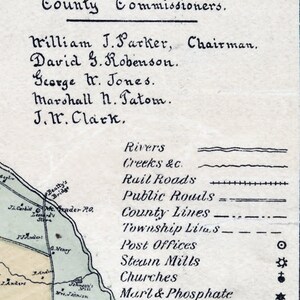 County Commissioners.
William J. Parker, Chairman.
David G. Robenson.
George W. Jones.
Marshall N. Tatom.
J. W. Clark.
Rivers
Creeks &c.
Rail Roads
Public Roads
County Lines
Township Lines
Post Offices
Steam Mills
Churches
Marl & Phosphate